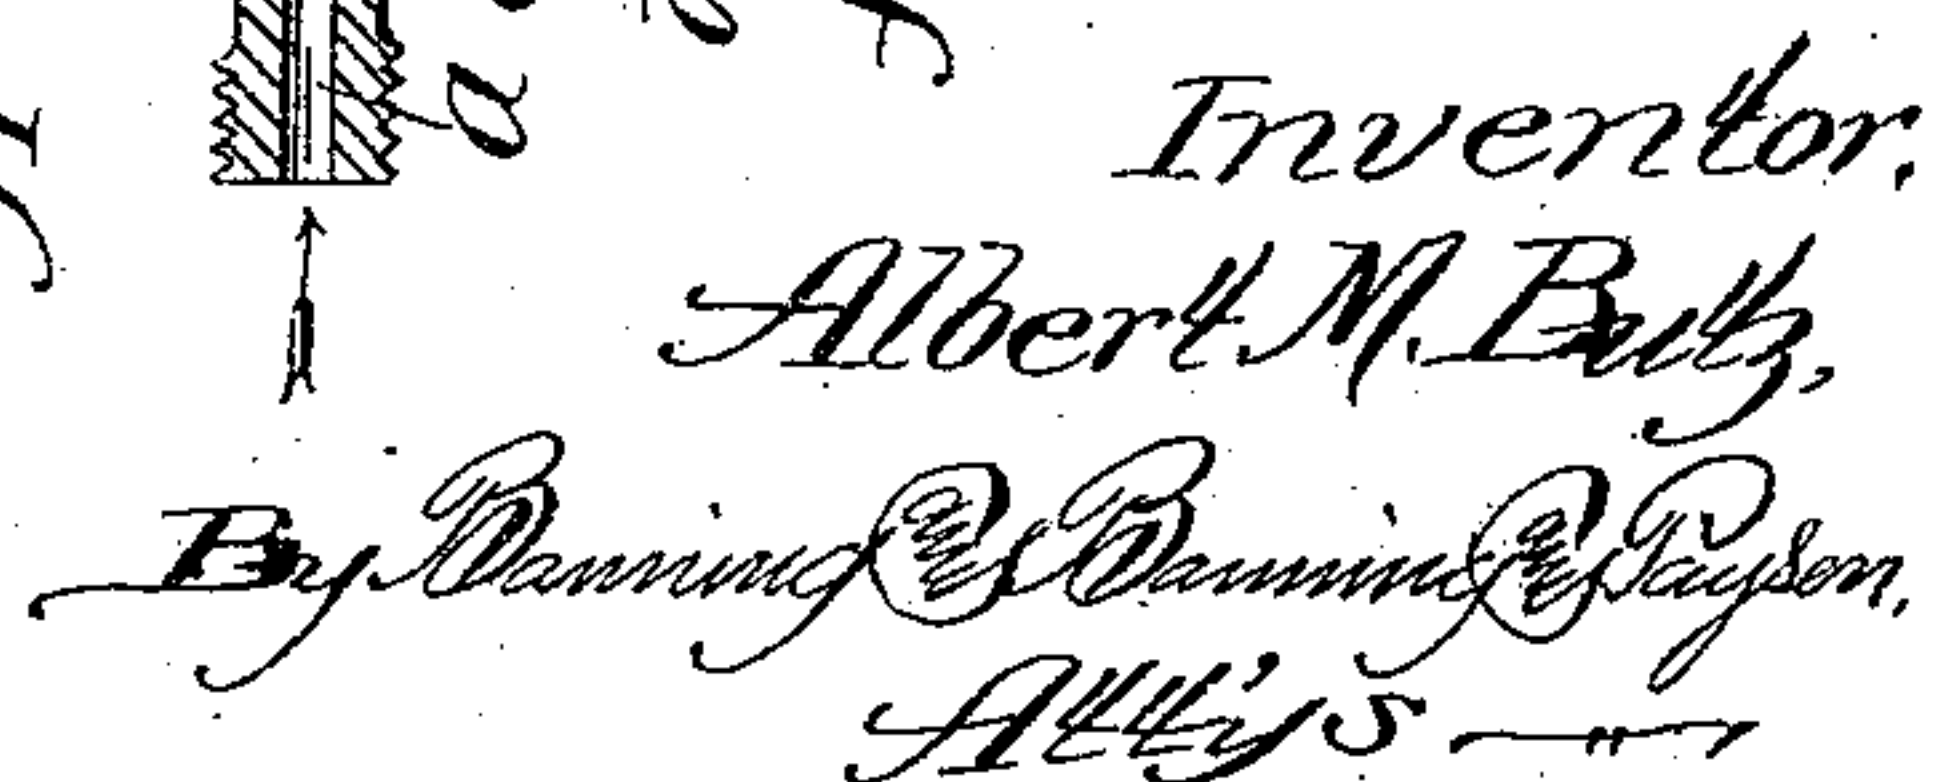 a
Inventor.
Albert M. Butz,
By Banning & Banning & Payson,
Att'ys